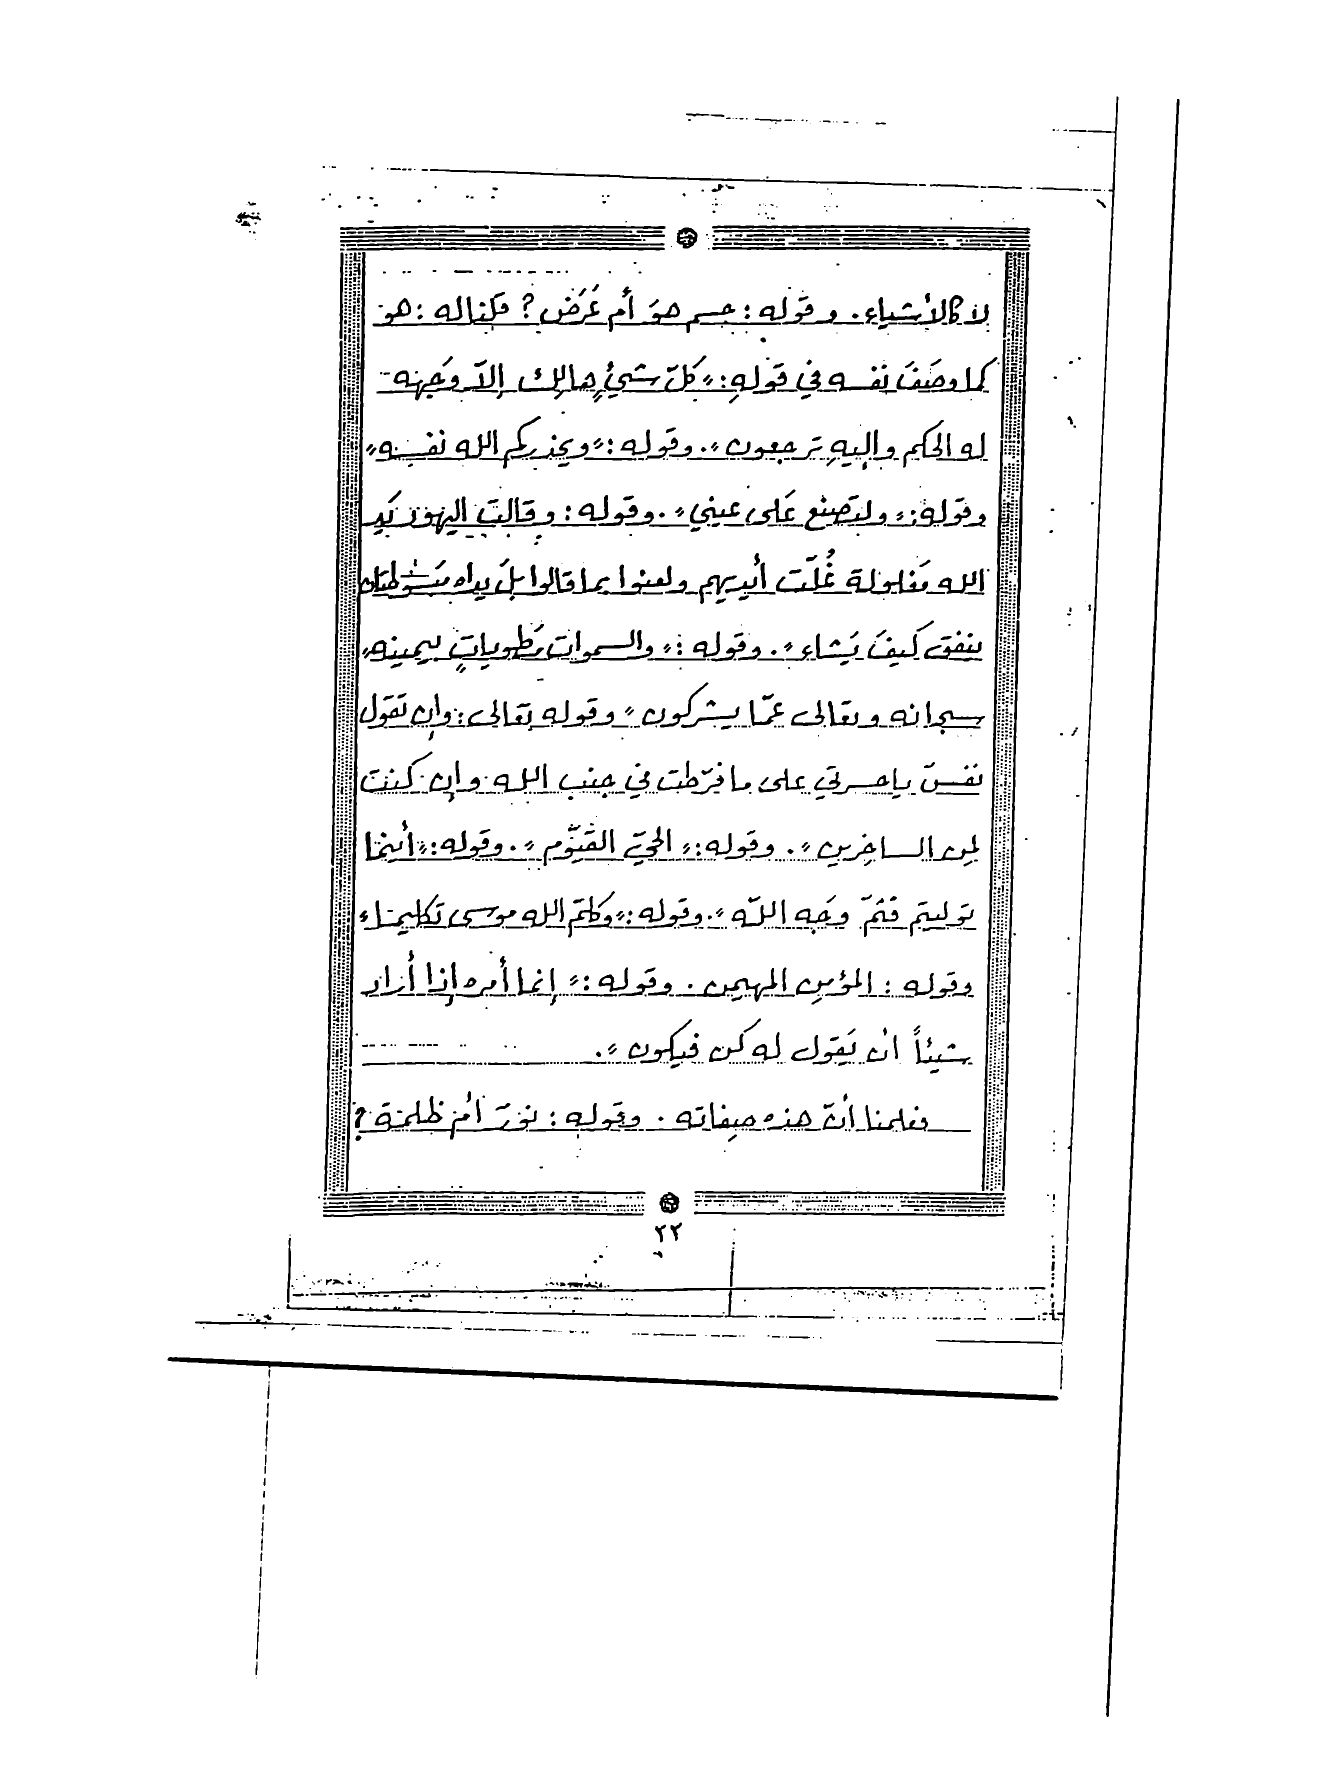 لا كالأشياء. وقوله: جسم هوَ أم عَرَض؟ فكناله: هو
كما وصَفَ نفسه في قَولهِ: «كلّ شيءٍ هالِك إلاّ وَجهَه
له الحكم وإليهِ تَرجعون». وقوله: «ويحذركم الله نفسَه»
وقوله: «ولتصنع عَلى عيني». وقوله: وقالت اليهود يَد
الله مَغلولة غُلّت أيديهم ولعنوا بما قالوا بلَ يداه مَبسُوطتان
ينفق كيفَ يَشاء». وقوله: «والسموات مَطوياتٍ بيمينه»
سبحانه وتعالى عمّا يشركون» وقوله تعالى: وإن تقول
نفسَ ياحسرتي على ما فرّطت في جنب الله وإن كنت
لمِن الساخِرين». وقوله: «الحيّ القَيّوم». وقوله: «أينما
توليتم فثمّ وَجه اللّه». وقوله: «وكلمّ الله موسى تكليماً»
وقوله: المؤمِن المهيمن. وقوله: «إنما أمره إذا أراد
شيئاً ان يَقول له كن فيكون».
فعلمنا أنّ هذه صِفاته. وقوله: نورَ أم ظلمة؟
٢٢